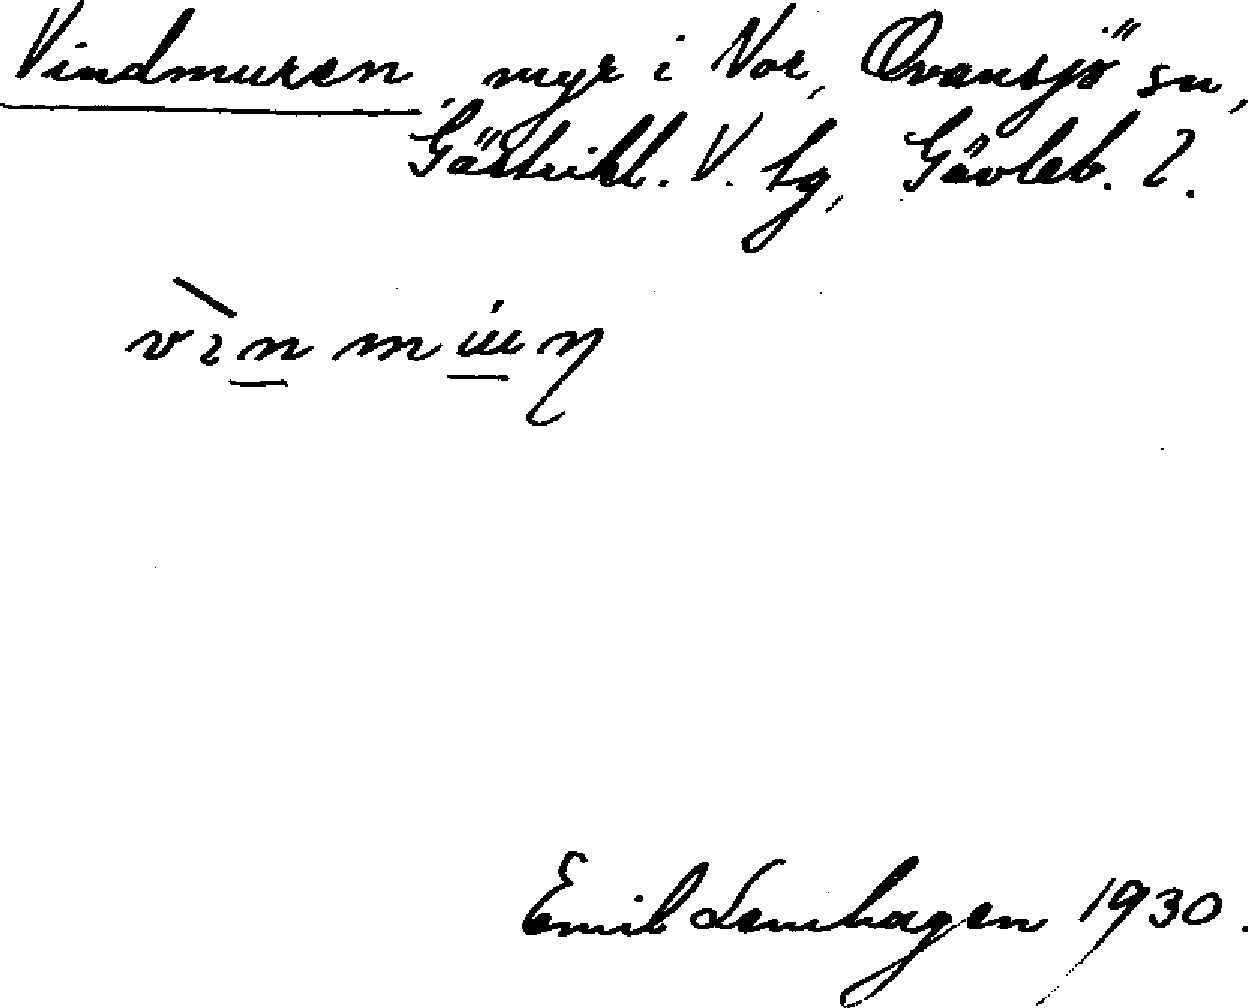 Vindmuren, myr i Vor, Ovansjö sn,
Gästrikl. V. tg, Gävleb. l.
Emil Lenhagen 1930.